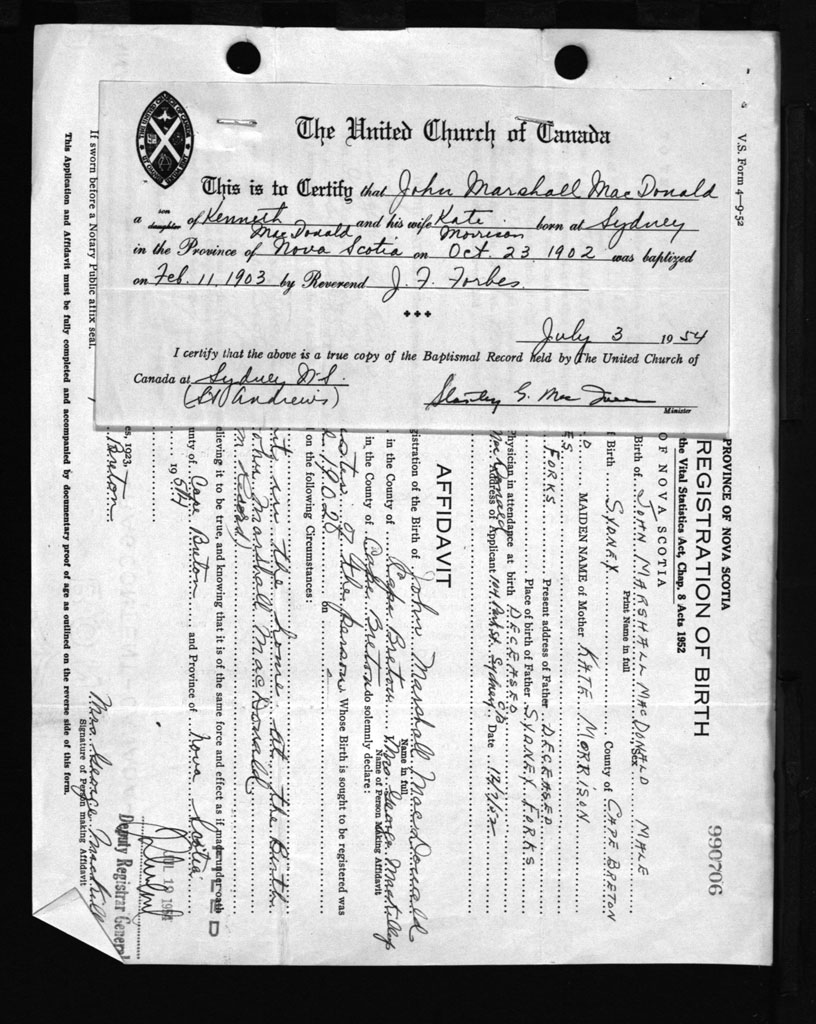 The United Church of Canada
This is to Certify that John Marshall MacDonald
a son daughter of Kenneth MacDonald and his wife Kate Morrison born at Sydney
in the Province of Nova Scotia on Oct. 23, 1902 was baptized
on Feb. 11, 1903 by Reverend J. F. Forbes
July 3 1954
I certify that the above is a true copy of the Baptismal Record held by The United Church of
Canada at Sydney N.S.
(St Andrews)
Stanley G. Mac
Minister
V.S. Form 4—9-52
990706
PROVINCE OF NOVA SCOTIA
REGISTRATION OF BIRTH
the Vital Statistics Act, Chap. 8 Acts 1952
OF NOVA SCOTIA
Birth of JOHN MARSHALL MACDONALD Sex MALE
Print Name in full
f Birth SYDNEY County of CAPE BRETON
D MAIDEN NAME of Mother KATE MORRISON
ES
FORKS Present address of Father DECEASED
Place of birth of Father SYDNEY FORKS
Physician in attendance at birth DECEASED
MacDonald Address of Applicant Sydney CB Date
AFFIDAVIT
gistration of the Birth of John Marshall MacDonald
Name in full
in the County of Cape Breton Mrs George
Name of Person Making Affidavit
in the County of Cape Breton do solemnly declare:
of the person Whose Birth is sought to be registered was
1902 on
on the following Circumstances:
ity in the home at the Birth
John Marshall MacDonald
elieving it to be true, and knowing that it is of the same force and effect as if made under oath
unty of Cape Breton and Province of Nova Scotia
1954
es, 1923.
Breton
FILED
JUL 19 1954
Deputy Registrar General
Mrs George
Signature of Person making Affidavit
If sworn before a Notary Public affix seal.
This Application and Affidavit must be fully completed and accompanied by documentary proof of age as outlined on the reverse side of this form.